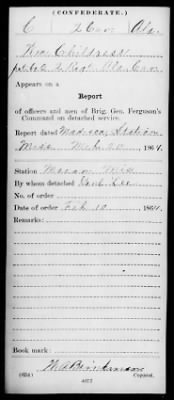 (CONFEDERATE.)
C 2 Cav Ala.
Wm Childress
pvt Co C, 2 Regt. Ala. Cav.
Appears on a
Report
of officers and men of Brig. Gen. Ferguson's
Command on detached service.
Report dated Madison Station
Miss. Mch 20, 1864.
Station Miss
By whom detached Genl Lee
No. of order
Date of order Feb 10, 1864.
Remarks:
Book mark:
(635) Copyist.